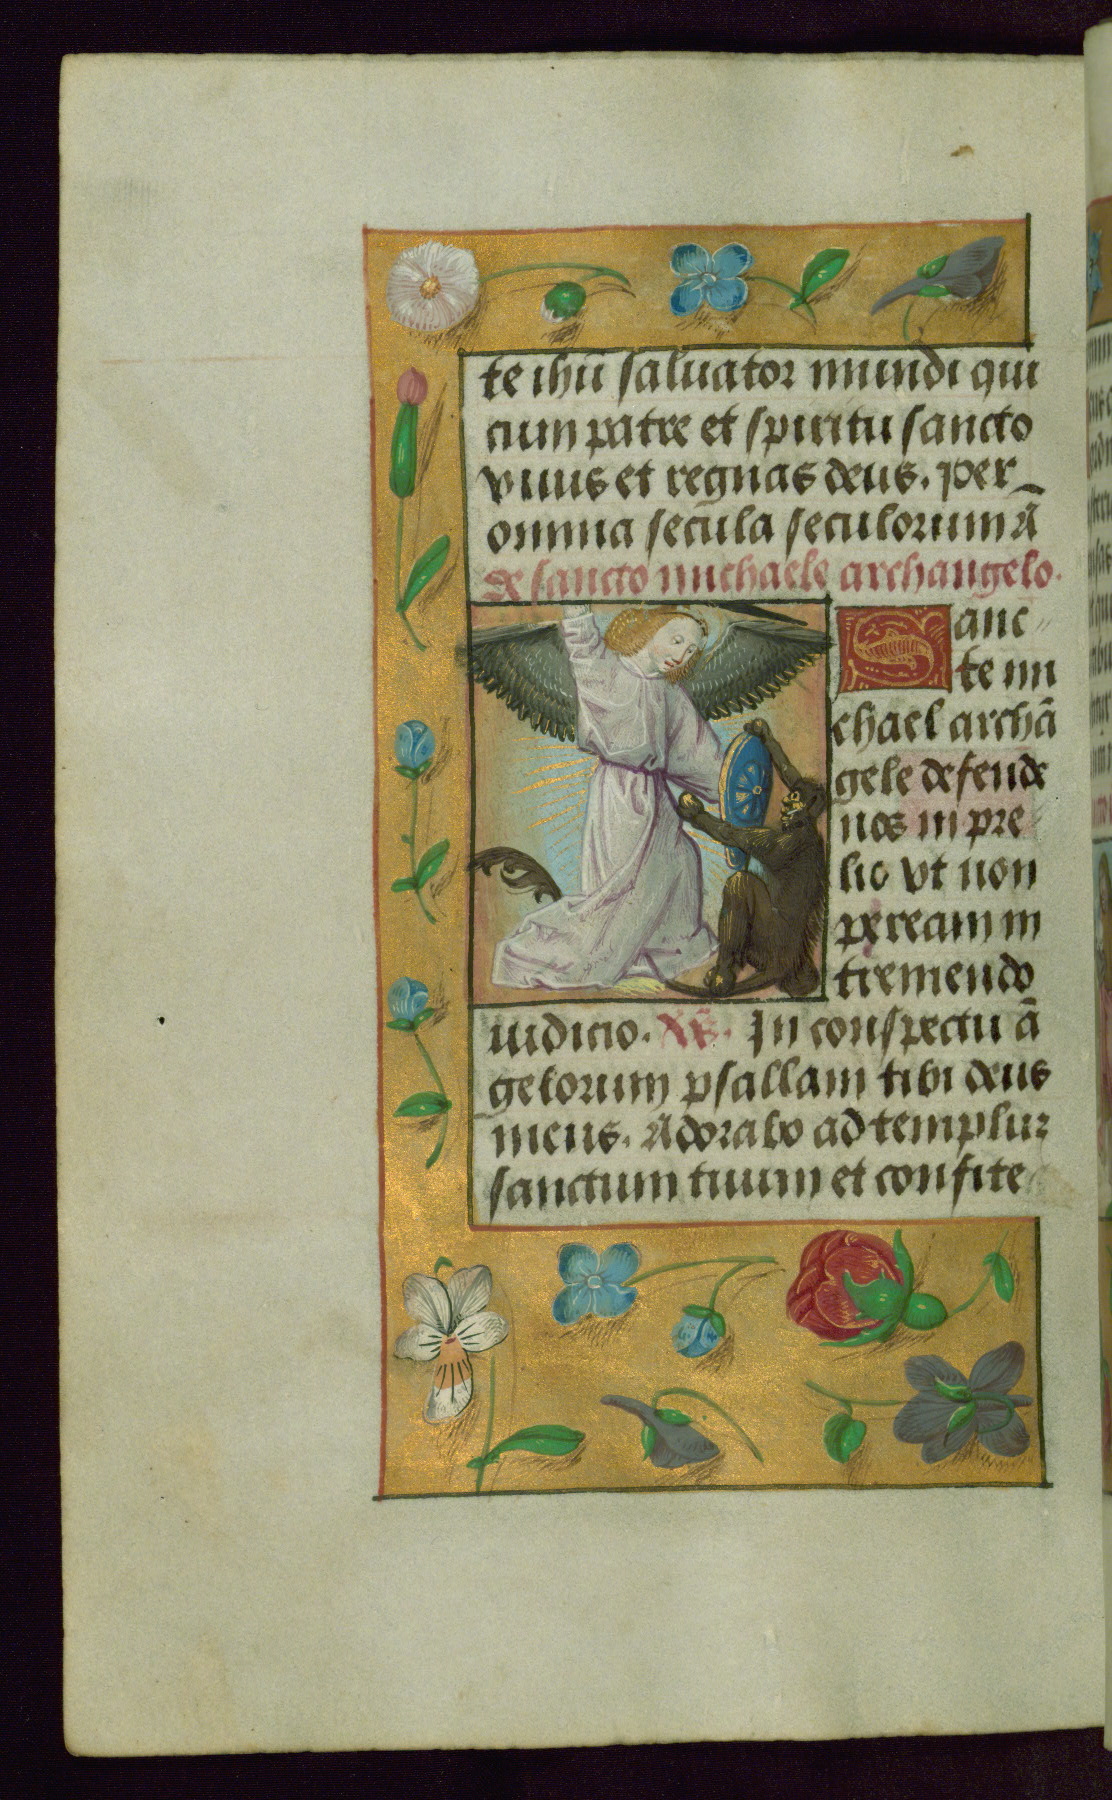 te ihũ saluator mundi qui
cum patre et spiritu sancto
viuis et regnas deus. per
omnia secula seculorum Ã
de sancto michaele archangelo.
Sanc
te mi
chael archã
gele defende
nos in pre
lio vt non
peream in
tremendo
iudicio. In conspectu ã
gelorum psallam tibi deus
meus. Adorabo ad templuz
sanctum tuum et confite